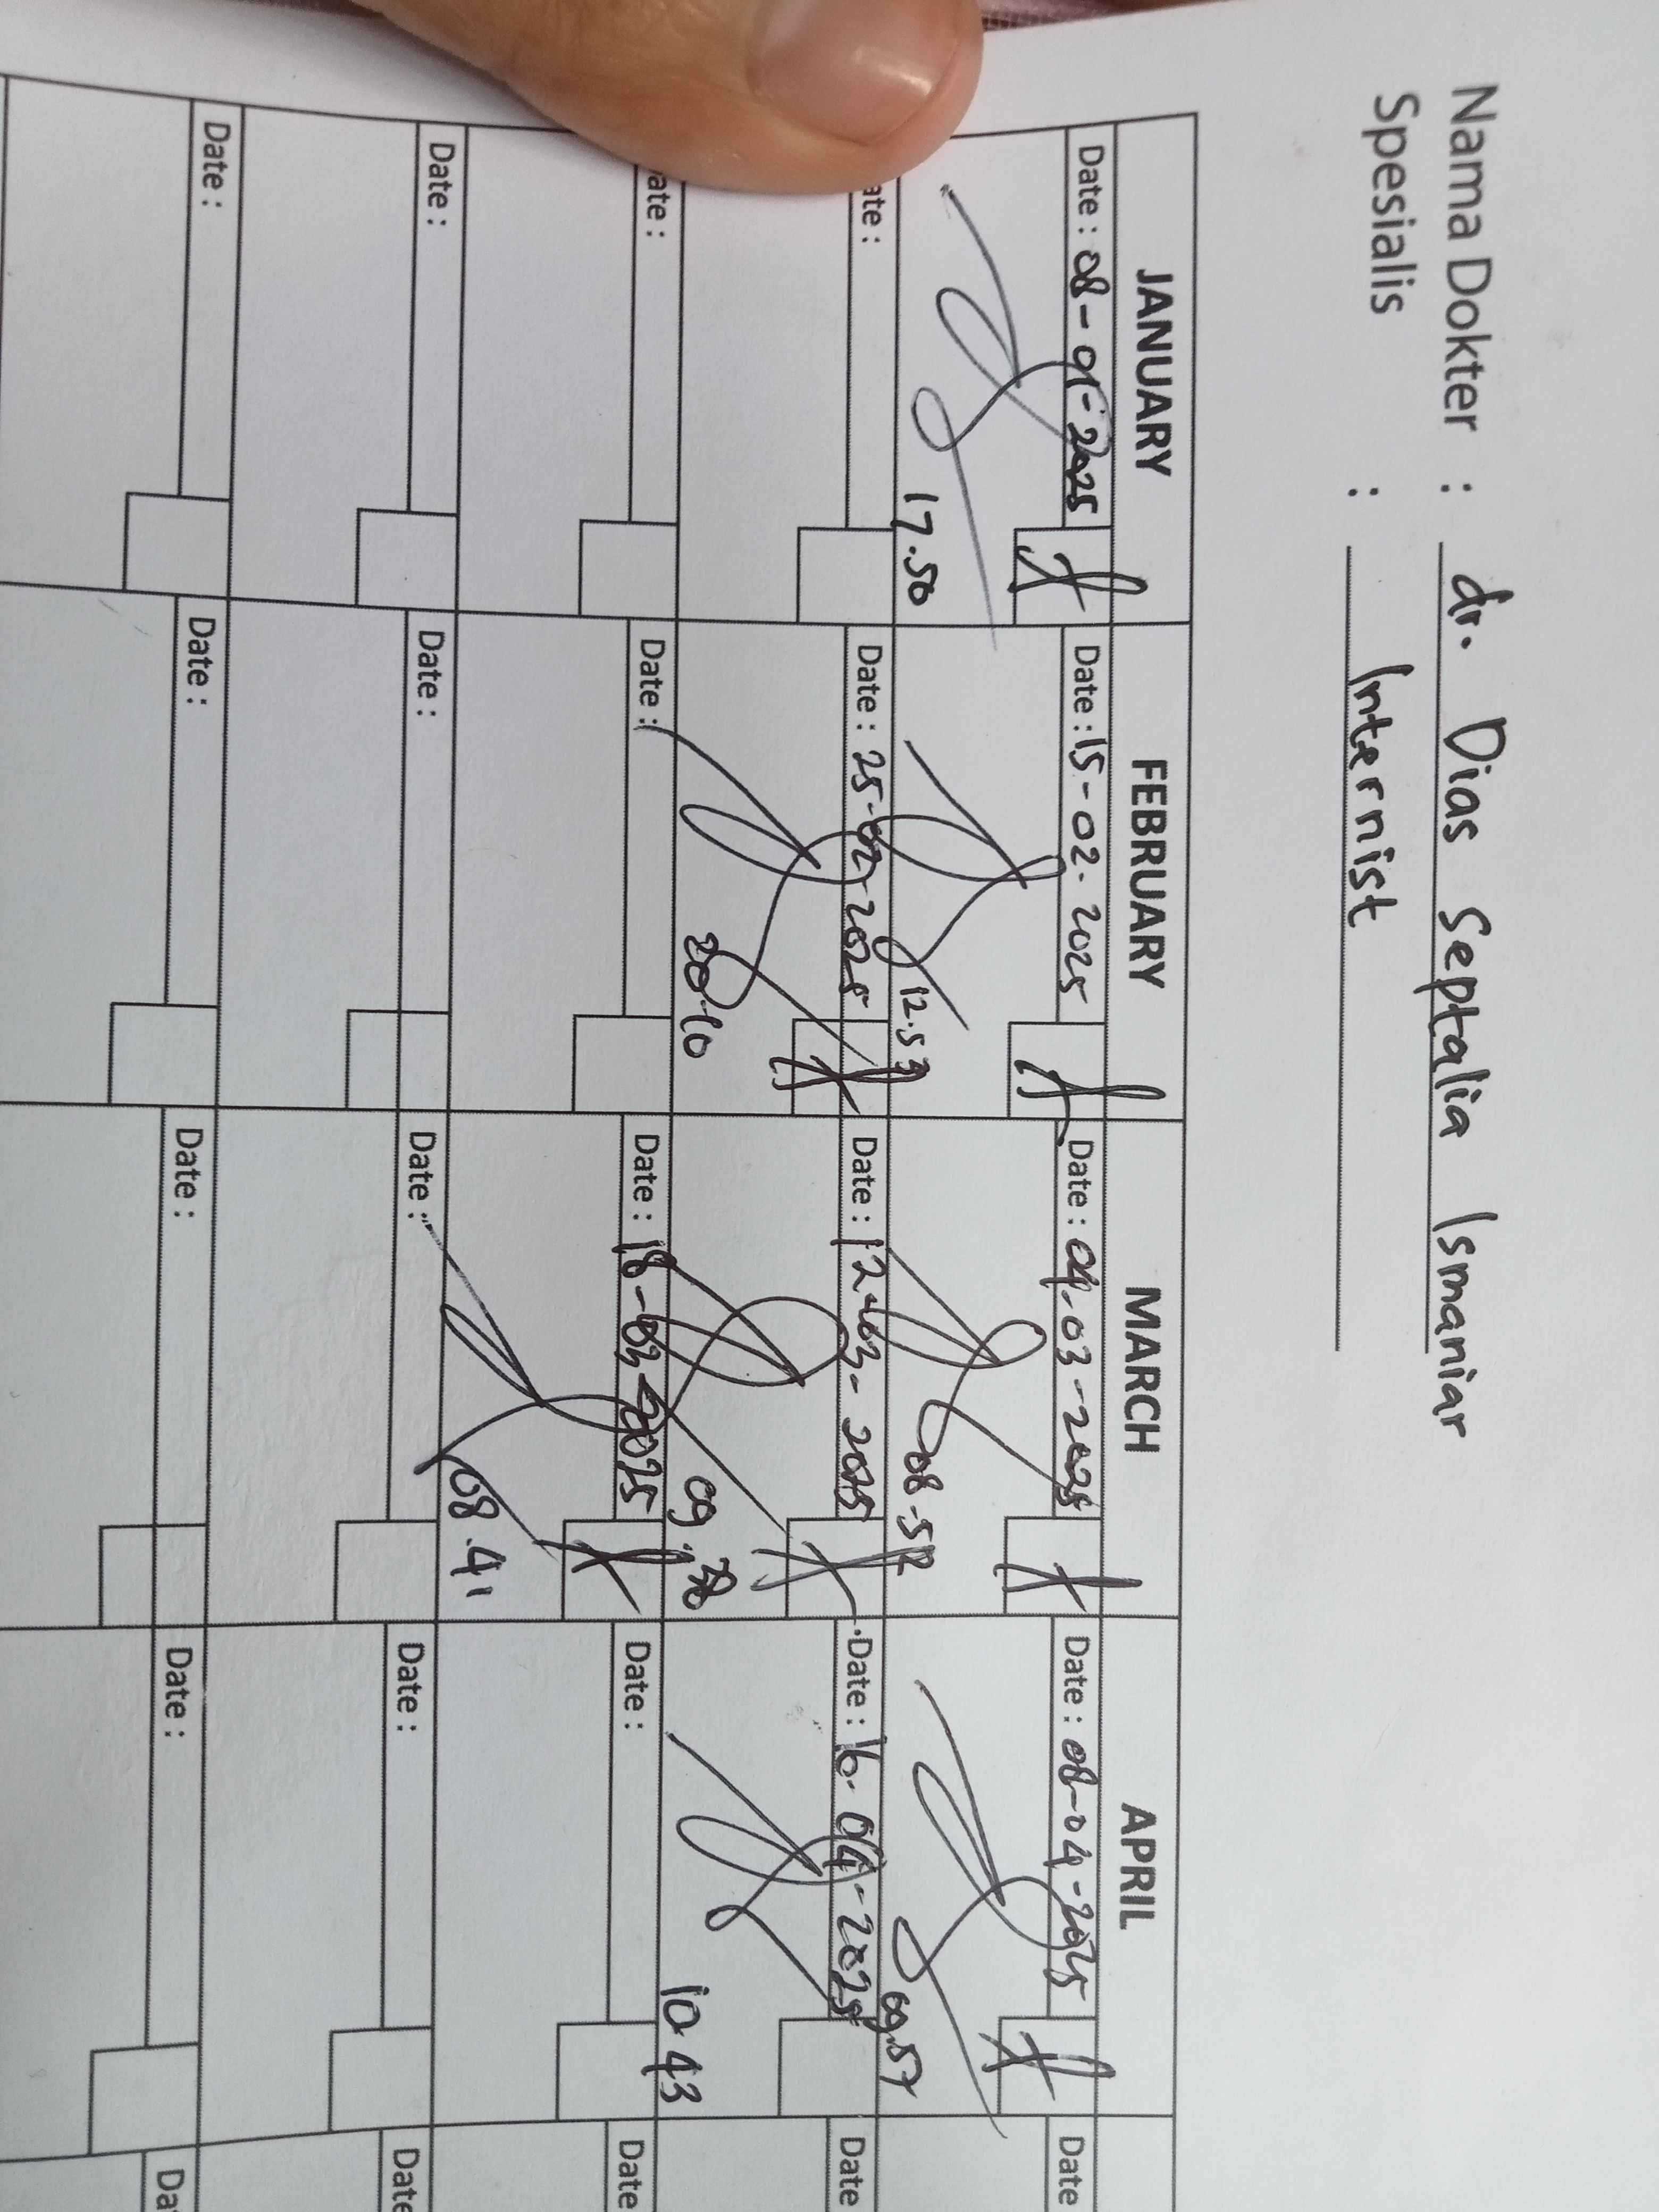 Nama Dokter : dr. Dias Septalia Ismaniar
Spesialis : Internist
JANUARY FEBRUARY MARCH APRIL
Date : 08-01-2025 Date : 15-02.2025 Date : 04-03-2025 Date : 08-04-2025 Date
17.50 12.53 08.52 09.57
ate : Date : 25-02-2025 Date : 12-03-2025 Date : 16-04-2025 Date
20.10 09. 10.43
ate : Date : Date : 18-03-2025 Date : Date
08.41
Date : Date : Date : Date : Date
Date : Date : Date : Date : Da